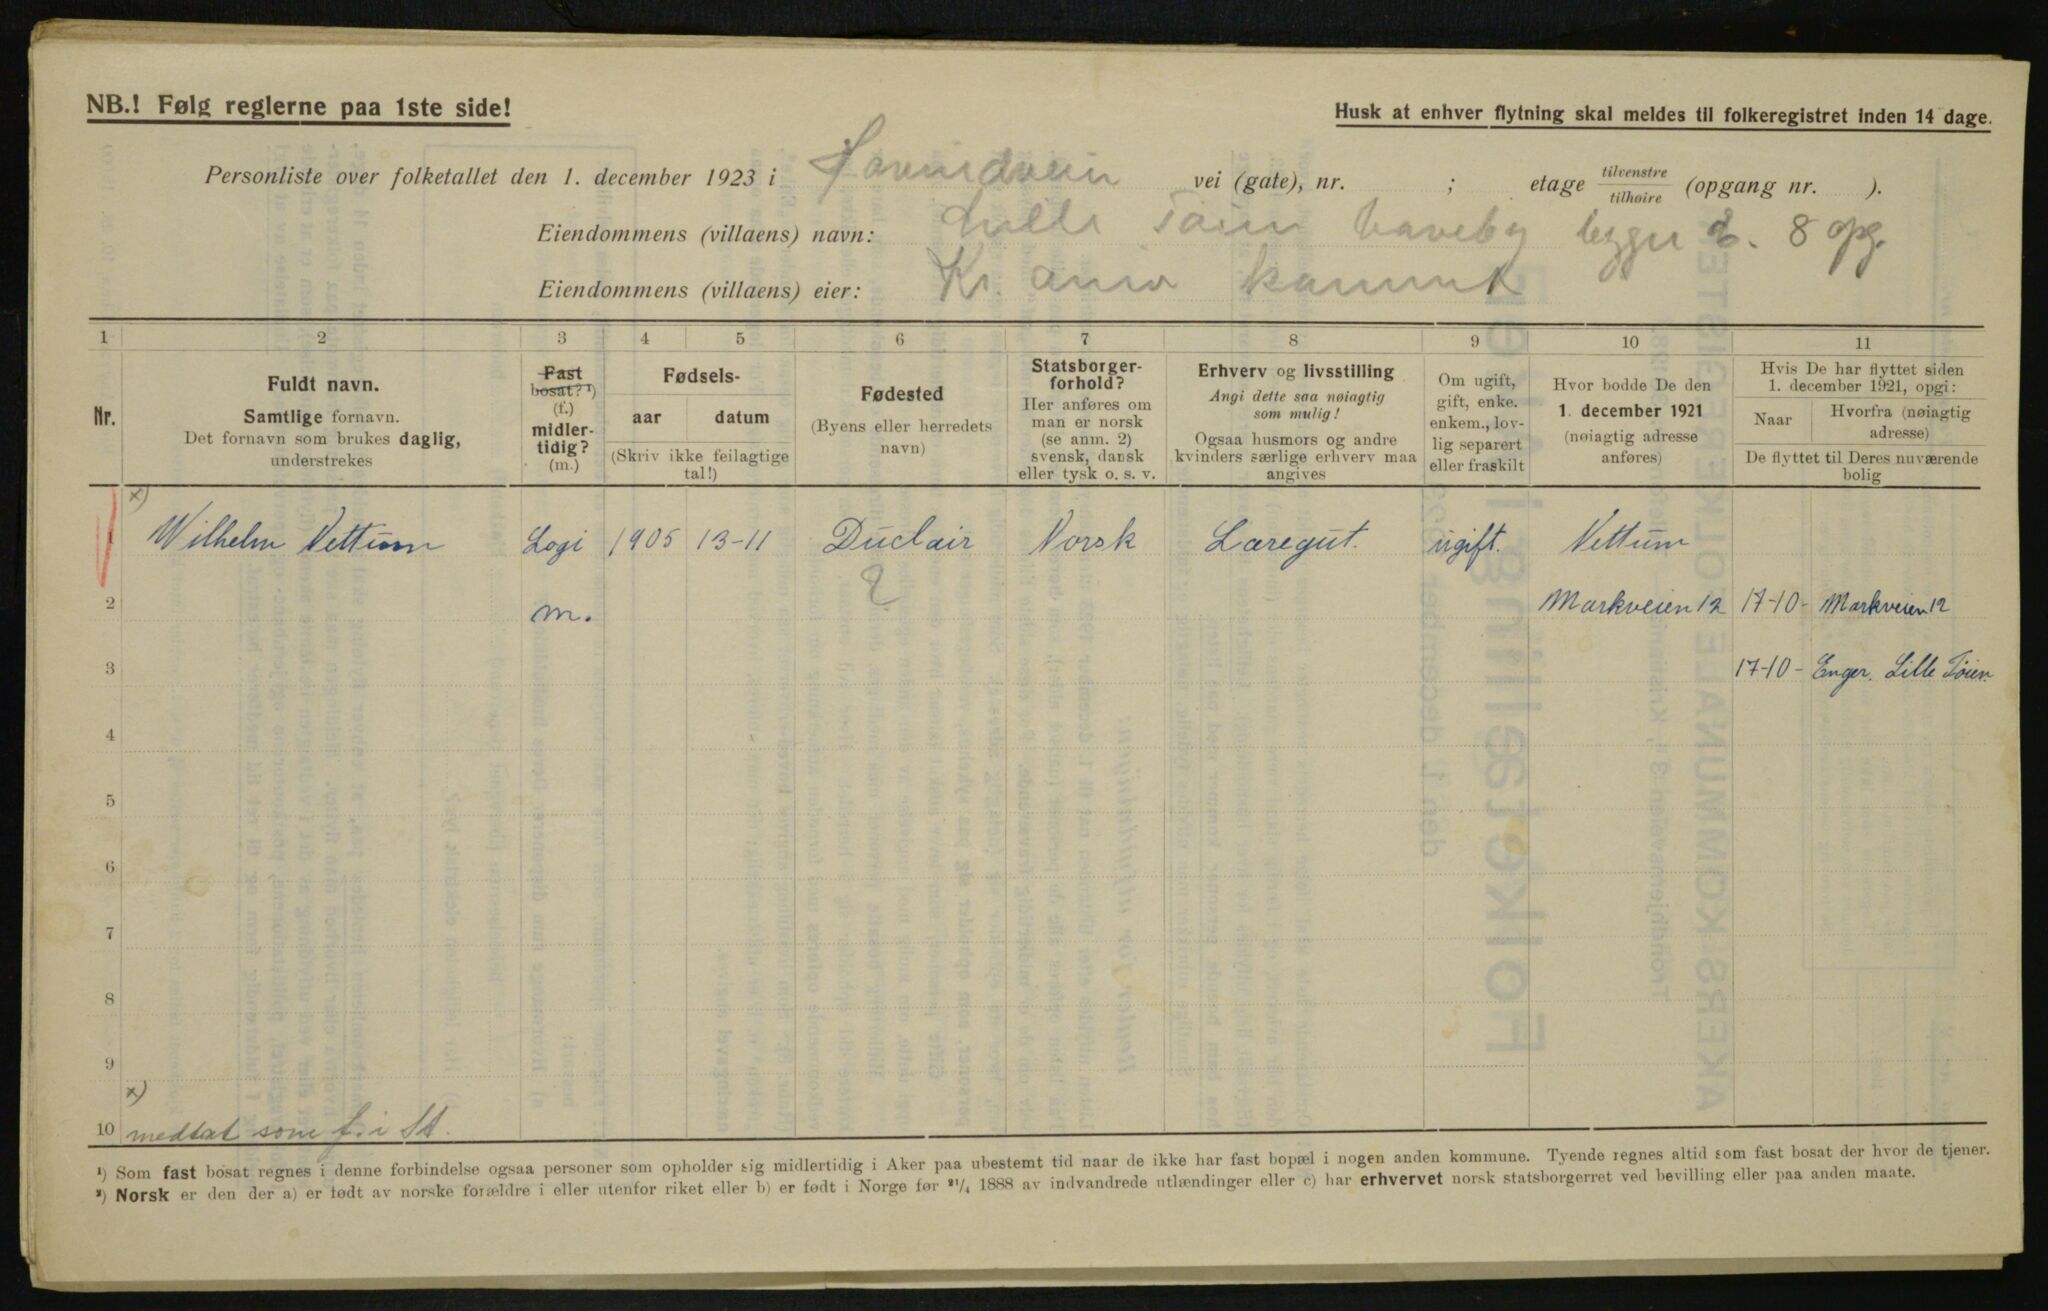 NB.! Følg reglerne paa 1ste side!
Husk at enhver flytning skal meldes til folkeregistret inden 14 dage.
Personliste over folketallet den 1. december 1923 i Hovindveien vei (gate), nr. ; etage tilvenstre tilhøire (opgang nr. ).
Eiendommens (villaens) navn: Lille Tøien Haveby 8 opg.
Eiendommens (villaens) eier: Kr. ania
1 2 3 4 5 6 7 8 9 10 11
Nr.
Fuldt navn.
Samtlige fornavn.
Det fornavn som brukes daglig,
understrekes
Fast
bosat? ¹)
(f.)
midler-
tidig?
(m.)
Fødsels-
aar datum
(Skriv ikke feilagtige
tal!)
Fødested
(Byens eller herredets
navn)
Statsborger-
forhold?
Her anføres om
man er norsk
(se anm. 2)
svensk, dansk
eller tysk o. s. v.
Erhverv og livsstilling
Angi dette saa nøiagtig
som mulig!
Ogsaa husmors og andre
kvinders særlige erhverv maa
angives
Om ugift,
gift, enke.
enkem., lov-
lig separert
eller fraskilt
Hvor bodde De den
1. december 1921
(nøiagtig adresse
anføres)
Hvis De har flyttet siden
1. december 1921, opgi:
Naar Hvorfra (nøiagtig
adresse)
De flyttet til Deres nuværende
bolig
x)
1 Wilhelm Vettum Logi 1905 13-11 Duclair Norsk Læregut. ugift. Vettum
2 m. ? Markveien 12 17-10- Markveien 12
3 17-10- Enger. Lille Tøien.
4
5
6
7
8
9
x)
10 medtat som f. i St.
¹) Som fast bosat regnes i denne forbindelse ogsaa personer som opholder sig midlertidig i Aker paa ubestemt tid naar de ikke har fast bopæl i nogen anden kommune. Tyende regnes altid som fast bosat der hvor de tjener.
²) Norsk er den der a) er født av norske forældre i eller utenfor riket eller b) er født i Norge før ²¹/₄ 1888 av indvandrede utlændinger eller c) har erhvervet norsk statsborgerret ved bevilling eller paa anden maate.